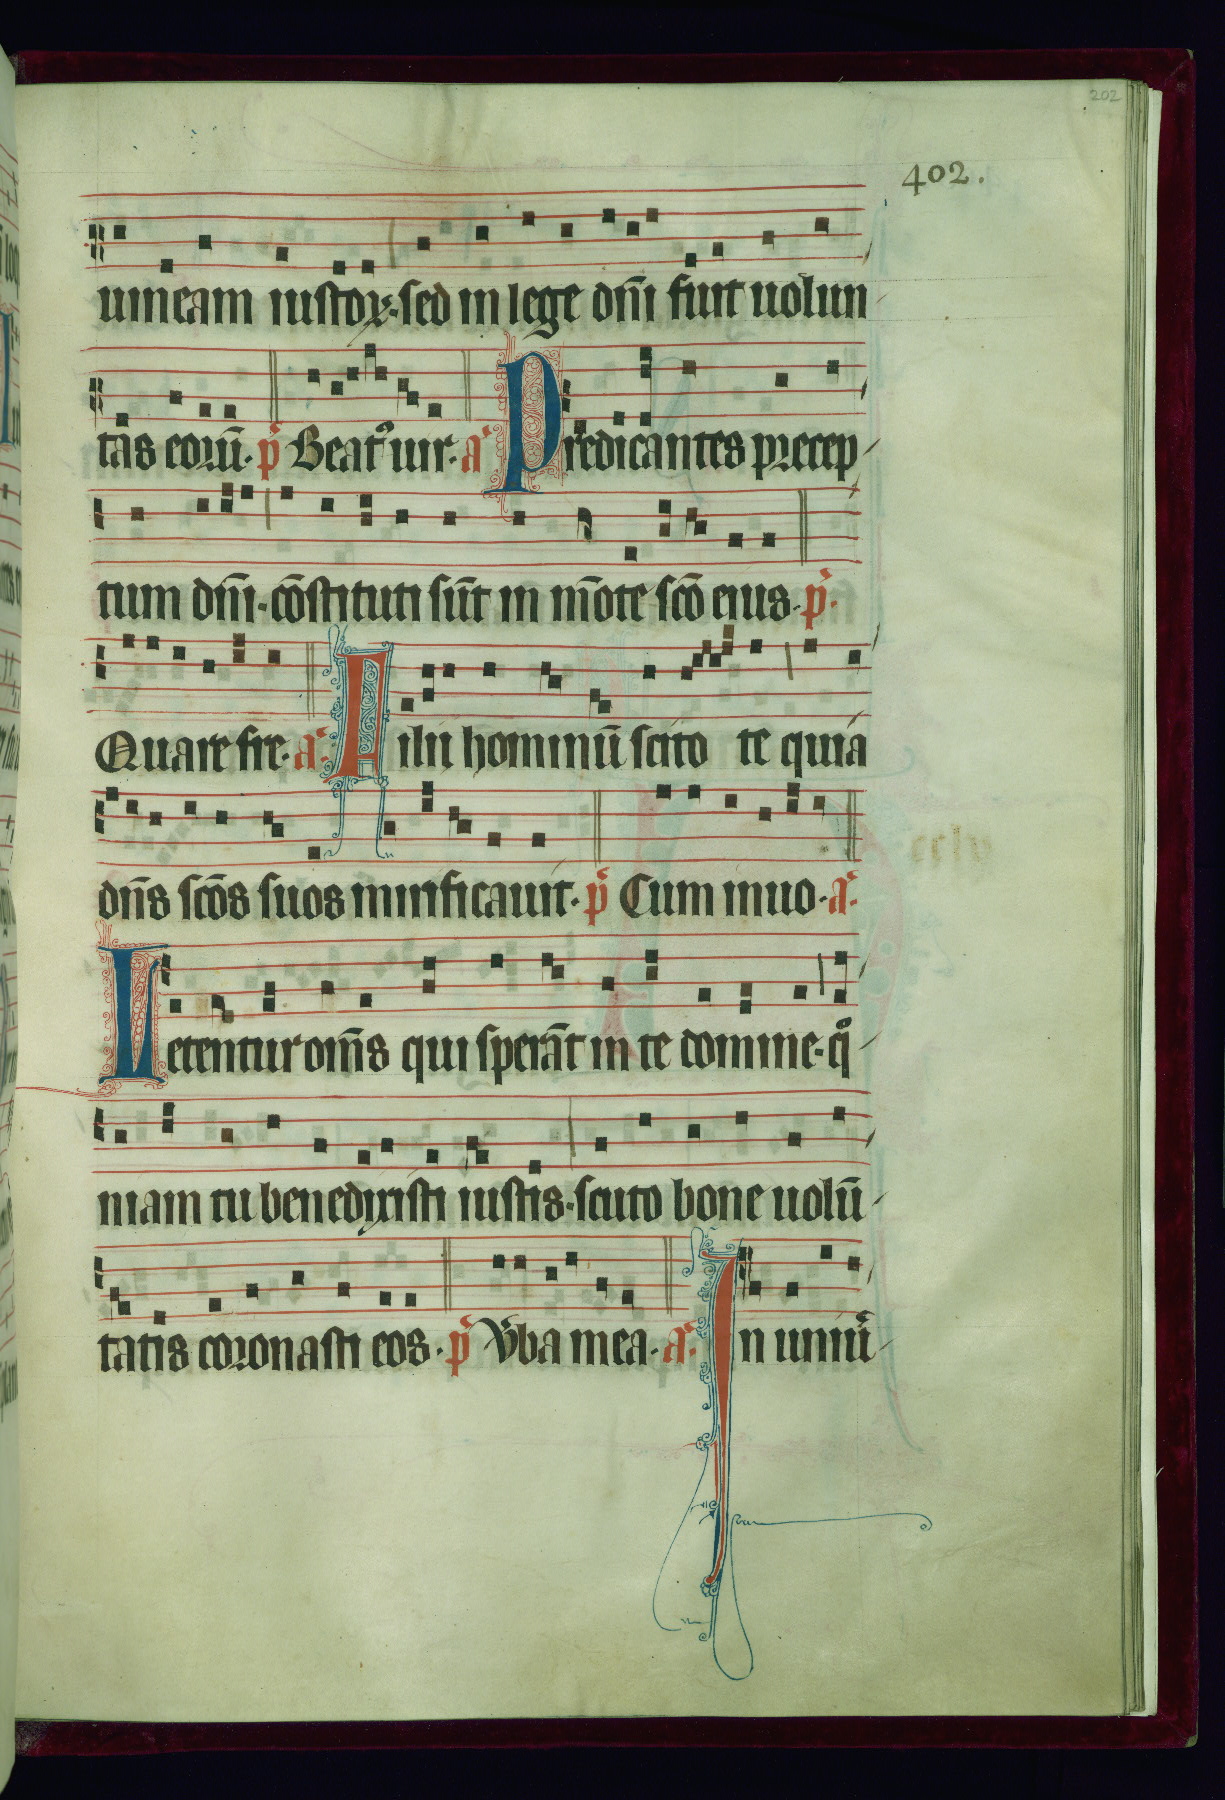 202
402.
uineam iustoꝝ·sed in lege dn̄i fuit uolun
tas eoꝛū· p̄ Beatꝰ uir· a Predicantes precep
tum dn̄i·cōstituti sūt in mōte scō eius· p̄·
Quare fre· a· Filii hominū scito te quia
dn̄s scōs suos mirificauit· p̄ Cum inuo· a·
Letentur om̄s qui sperāt in te domine·qͦ
niam tu benedixisti iustis·scuto bone uolū
tatis coꝛonasti eos· p̄ Vba mea· a· In uniū